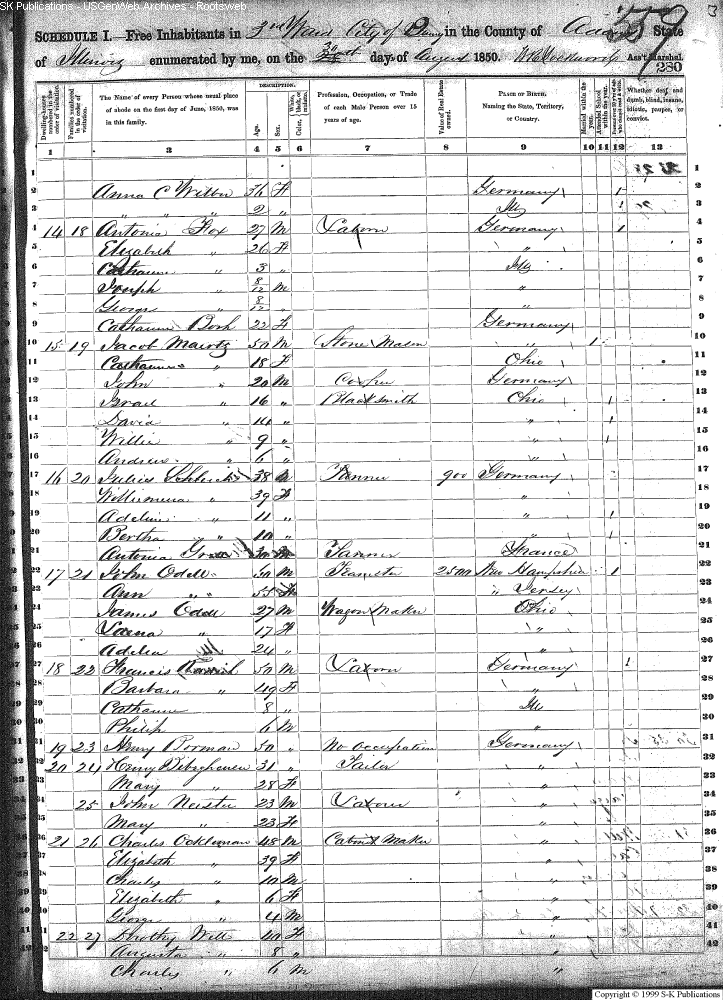 SK Publications - USGenWeb Archives - Rootsweb
SCHEDULE I.—Free Inhabitants in 3rd Ward City of Quincy in the County of Adams State
of Illinois enumerated by me, on the day of August 1850. Ass't Marshal.
280
Dwelling-houses numbered in the order of visitation.
Families numbered in the order of visitation.
The Name of every Person whose usual place of abode on the first day of June, 1850, was in this family.
DESCRIPTION.
Age.
Sex.
Color, White, black, or mulatto.
Profession, Occupation, or Trade of each Male Person over 15 years of age.
Value of Real Estate owned.
PLACE OF BIRTH. Naming the State, Territory, or Country.
Married within the year.
Attended School within the year.
Whether deaf and dumb, blind, insane, idiotic, pauper, or convict.
1 2 3 4 5 6 7 8 9 10 11 12 13
Anna C Wilber 36 F Germany 1
" " " 2 " Ills
14 18 Antonia Fox 27 M Laborer Germany 1
Elizabeth " 26 F "
Catharine " 3 " Ills
Joseph " 8/12 M "
George " 8/12 " "
Catharine Bosh 22 F Germany
15 19 Jacob Mairtz 50 M Stone Mason " 1
Catharine " 18 F Ohio
John " 20 M Cooper Germany
Israel " 16 " Blacksmith Ohio 1
David " 14 " " 1
Willie " 9 " " 1
Andrew " 6 " "
16 20 Julius 38 M Tanner 900 Germany
" 39 F "
Adeline " 11 " " 1
Bertha " 10 " " 1
Antonia 30 M Tanner France
17 21 John Odell 50 M Teamster 2500 New Hampshire 1
Ann " 55 F " Jersey
James Odell 27 M Wagon Maker Ohio
" 17 F "
Adelia " 24 " "
18 22 Francis 50 M Laborer Germany 1
Barbara " 49 F "
Catharine " 8 " Ills
Philip " 6 M "
19 23 Henry Borman 30 " No occupation Germany
20 24 Henry 31 " Tailor "
Mary " 28 F "
25 John 23 M Laborer "
Mary " 23 F
21 26 Charles Ockleman 48 M Cabinet Maker "
Elizabeth " 39 F "
Charles " 10 M "
Elizabeth " 6 F "
George " 4 M "
22 27 Dorothy Will 40 F "
Augusta " 8 " "
Charles " 6 M "
Copyright © 1999 S-K Publications